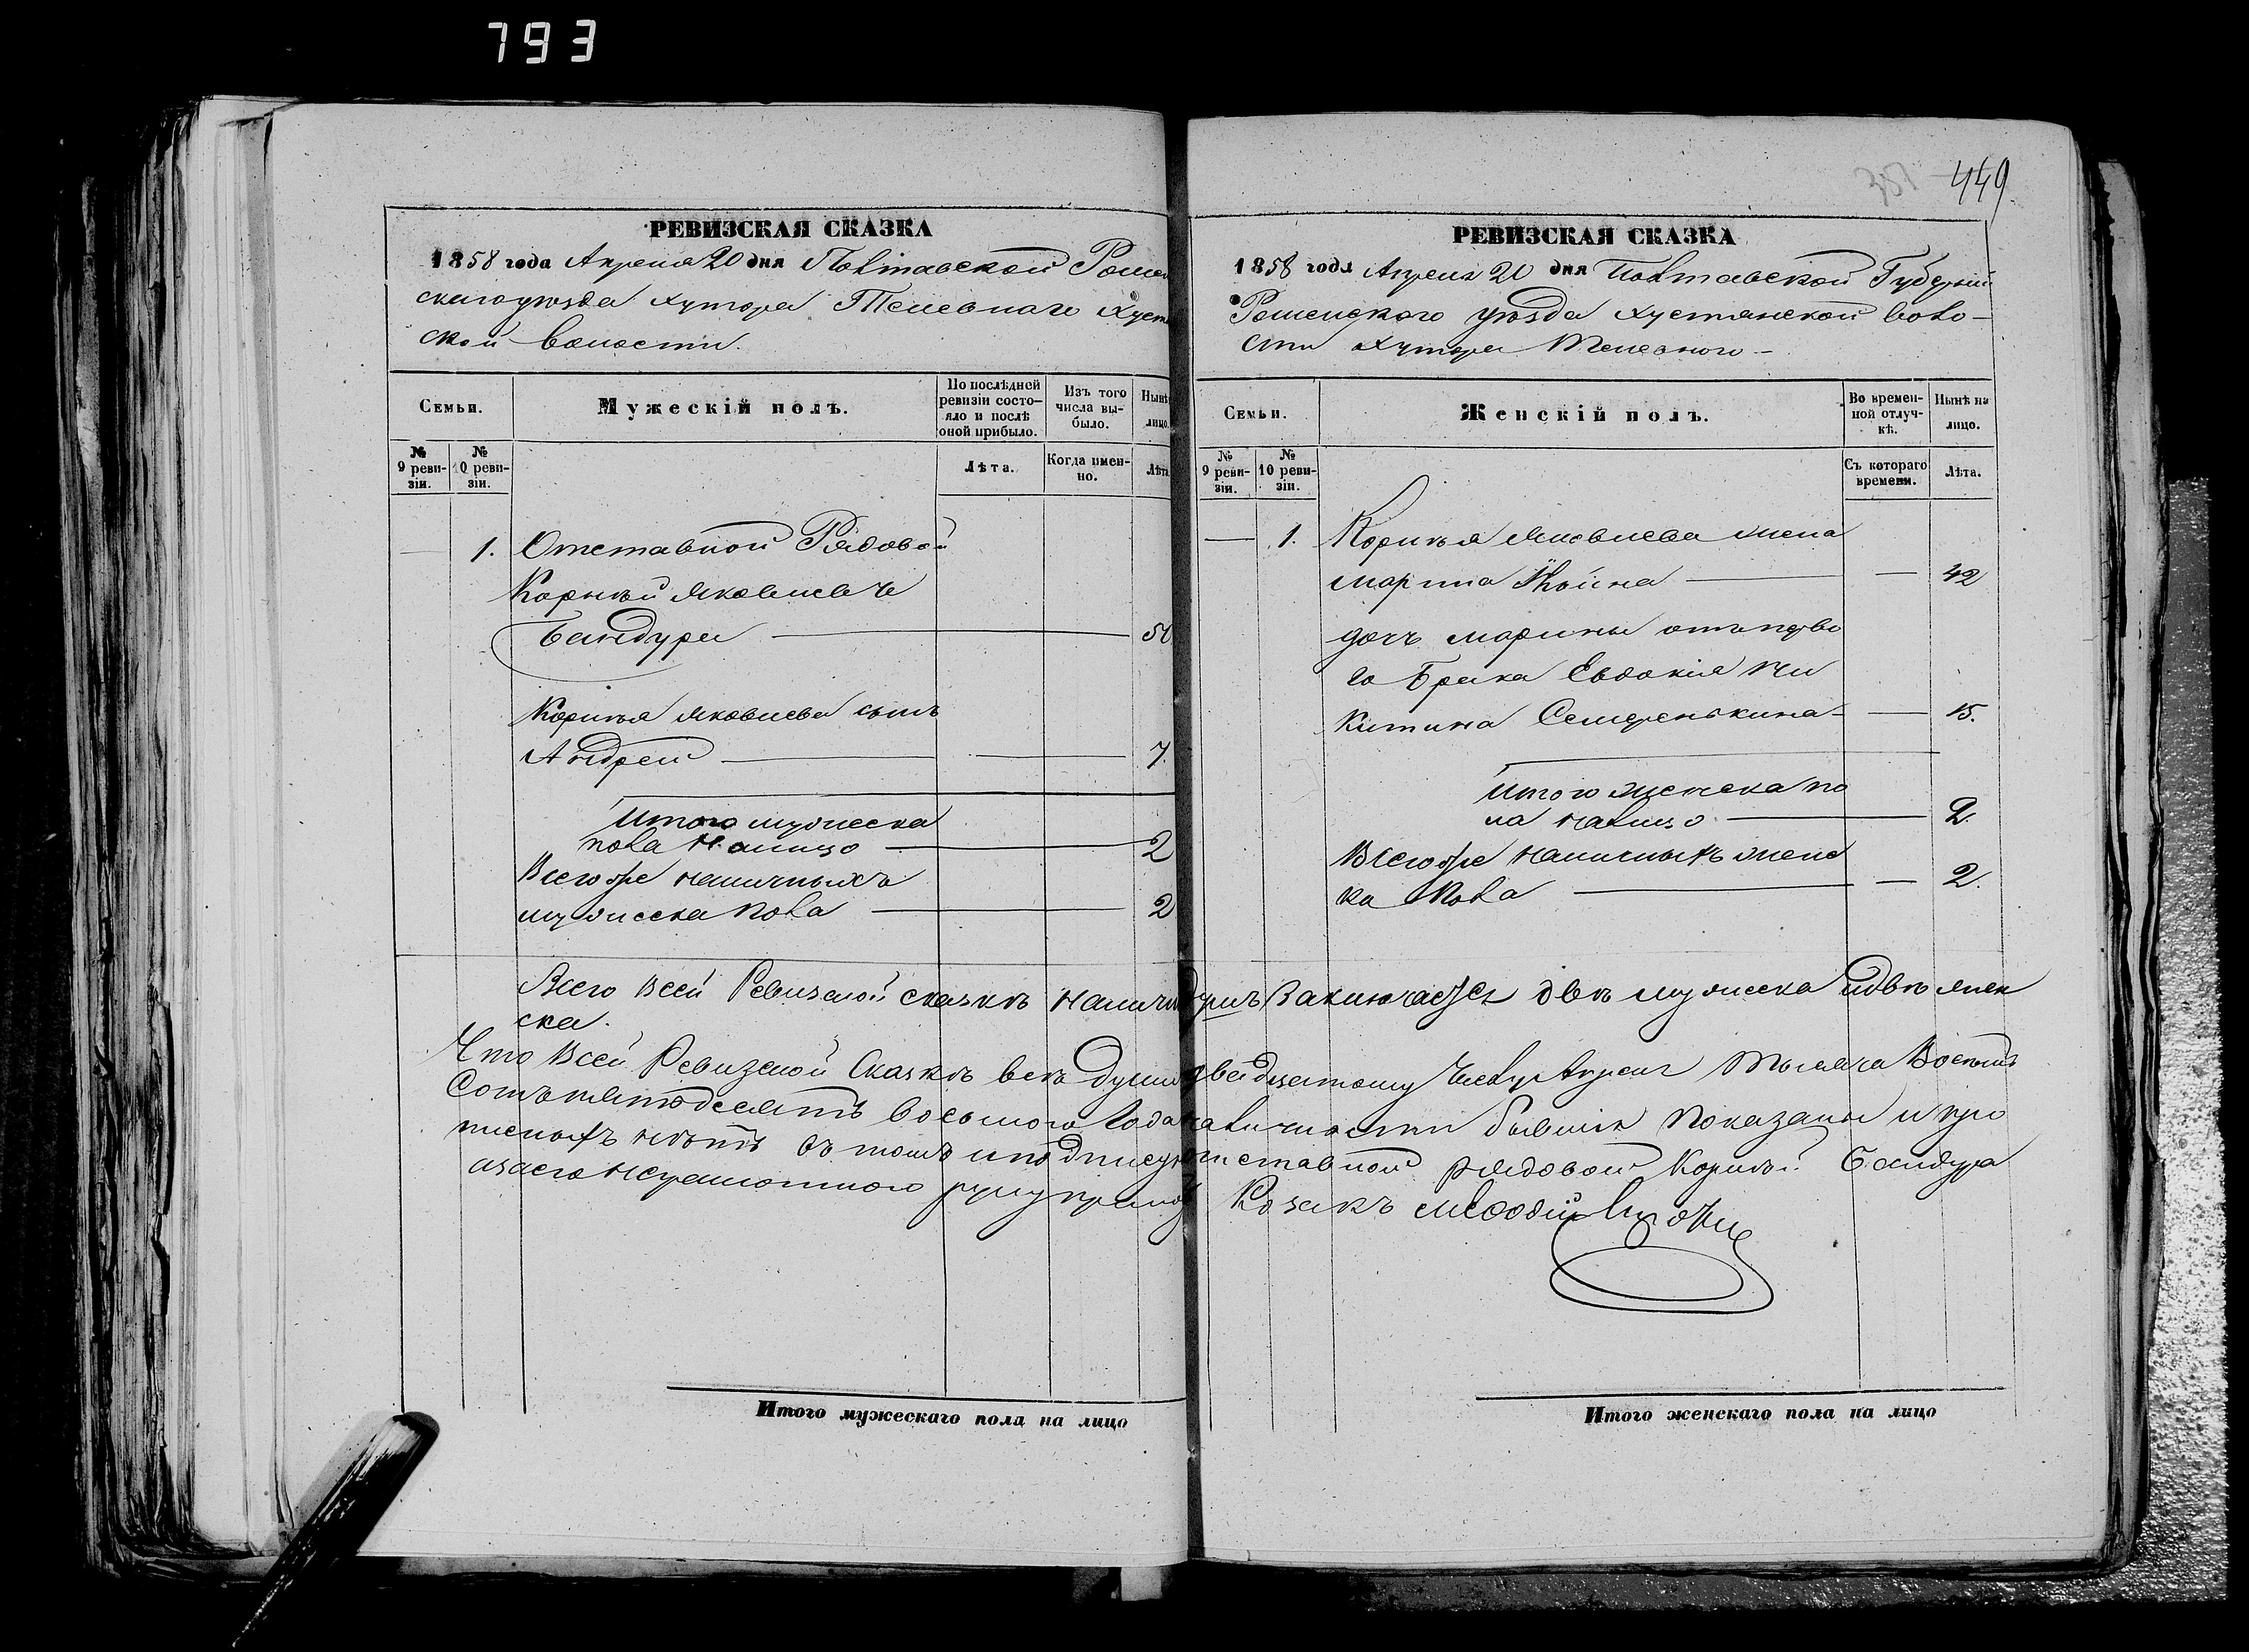 793
449
РЕВИЗСКАЯ СКАЗКА
1858 года Апреля 20 дня Полтавской Ромен
скаго уѣзда хутора Телевнаго Хустян
ской Волости.
Семьи.
Мужескій полъ.
По послѣдней ревизіи состояло и послѣ оной прибыло.
Изъ того числа выбыло.
Нынѣ
лицо.
№ 9 ревизіи.
№ 10 ревизіи.
Лѣта.
Когда именно.
Лѣта.
1. Отставной Рядовой
Корнѣй Яковлевъ
Бандура
Корнѣя Яковлева сынъ
Андрей 7.
Итого мужеска
пола на лицо 2
Всего же наличныхъ
мужеска пола 2
РЕВИЗСКАЯ СКАЗКА
1858 года Апреля 20 дня Полтавской Губерніи
Роменского уѣзда Хустянской Воло-
сти хутора Телевного
Семьи.
Женскій полъ.
Во временной отлучкѣ.
Нынѣ на лицо.
№ 9 ревизіи.
№ 10 ревизіи.
Съ котораго времени.
Лѣта.
1. Корнѣя Яковлева жена
Марина 42
дочь Марины отъ перво
го Брака Евдокія Ни
китина Семеренькина 15.
Итого женска по
ла налицо 2.
Всего же наличныхъ женс
ка Пола 2.
Всего всей Ревизской сказкѣ налично душъ Заключается двѣ мужеска и двѣ жен
ска.
Что Всей Ревизской Сказкѣ всѣ души двадцатому Числу Апреля Тысяча Восемь
Сотъ пятдесятъ восьмого Года наличности бывшія показаны и про
писныхъ нѣтъ въ томъ и подписуюсь отставной рядовой Корнѣй Бандура
а за его неграмотного руку приложилъ Козакъ Мефодій
Итого мужескаго пола на лицо
Итого женскаго пола на лицо